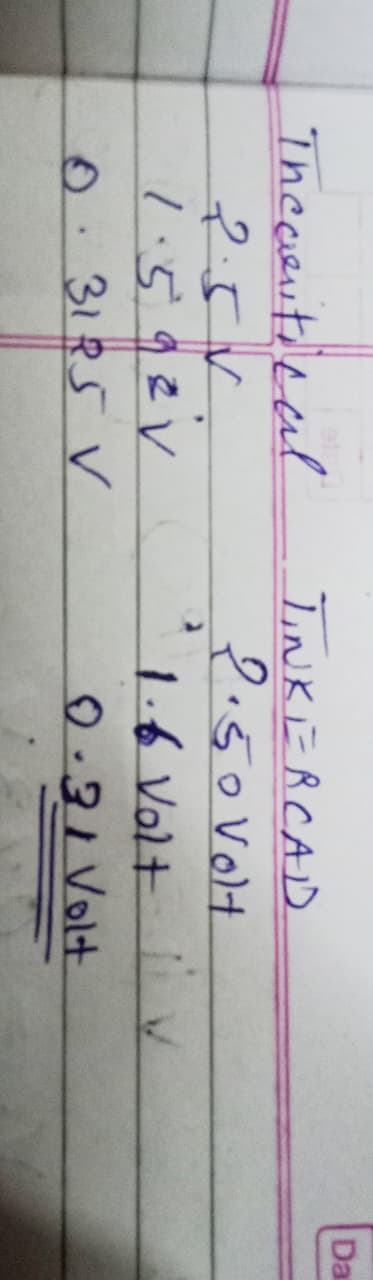 Theoretical TINKERCAD
2.5 V 2.50 Volt
1.592V 1.6 Volt
0.3125 V 0.31 Volt
Da